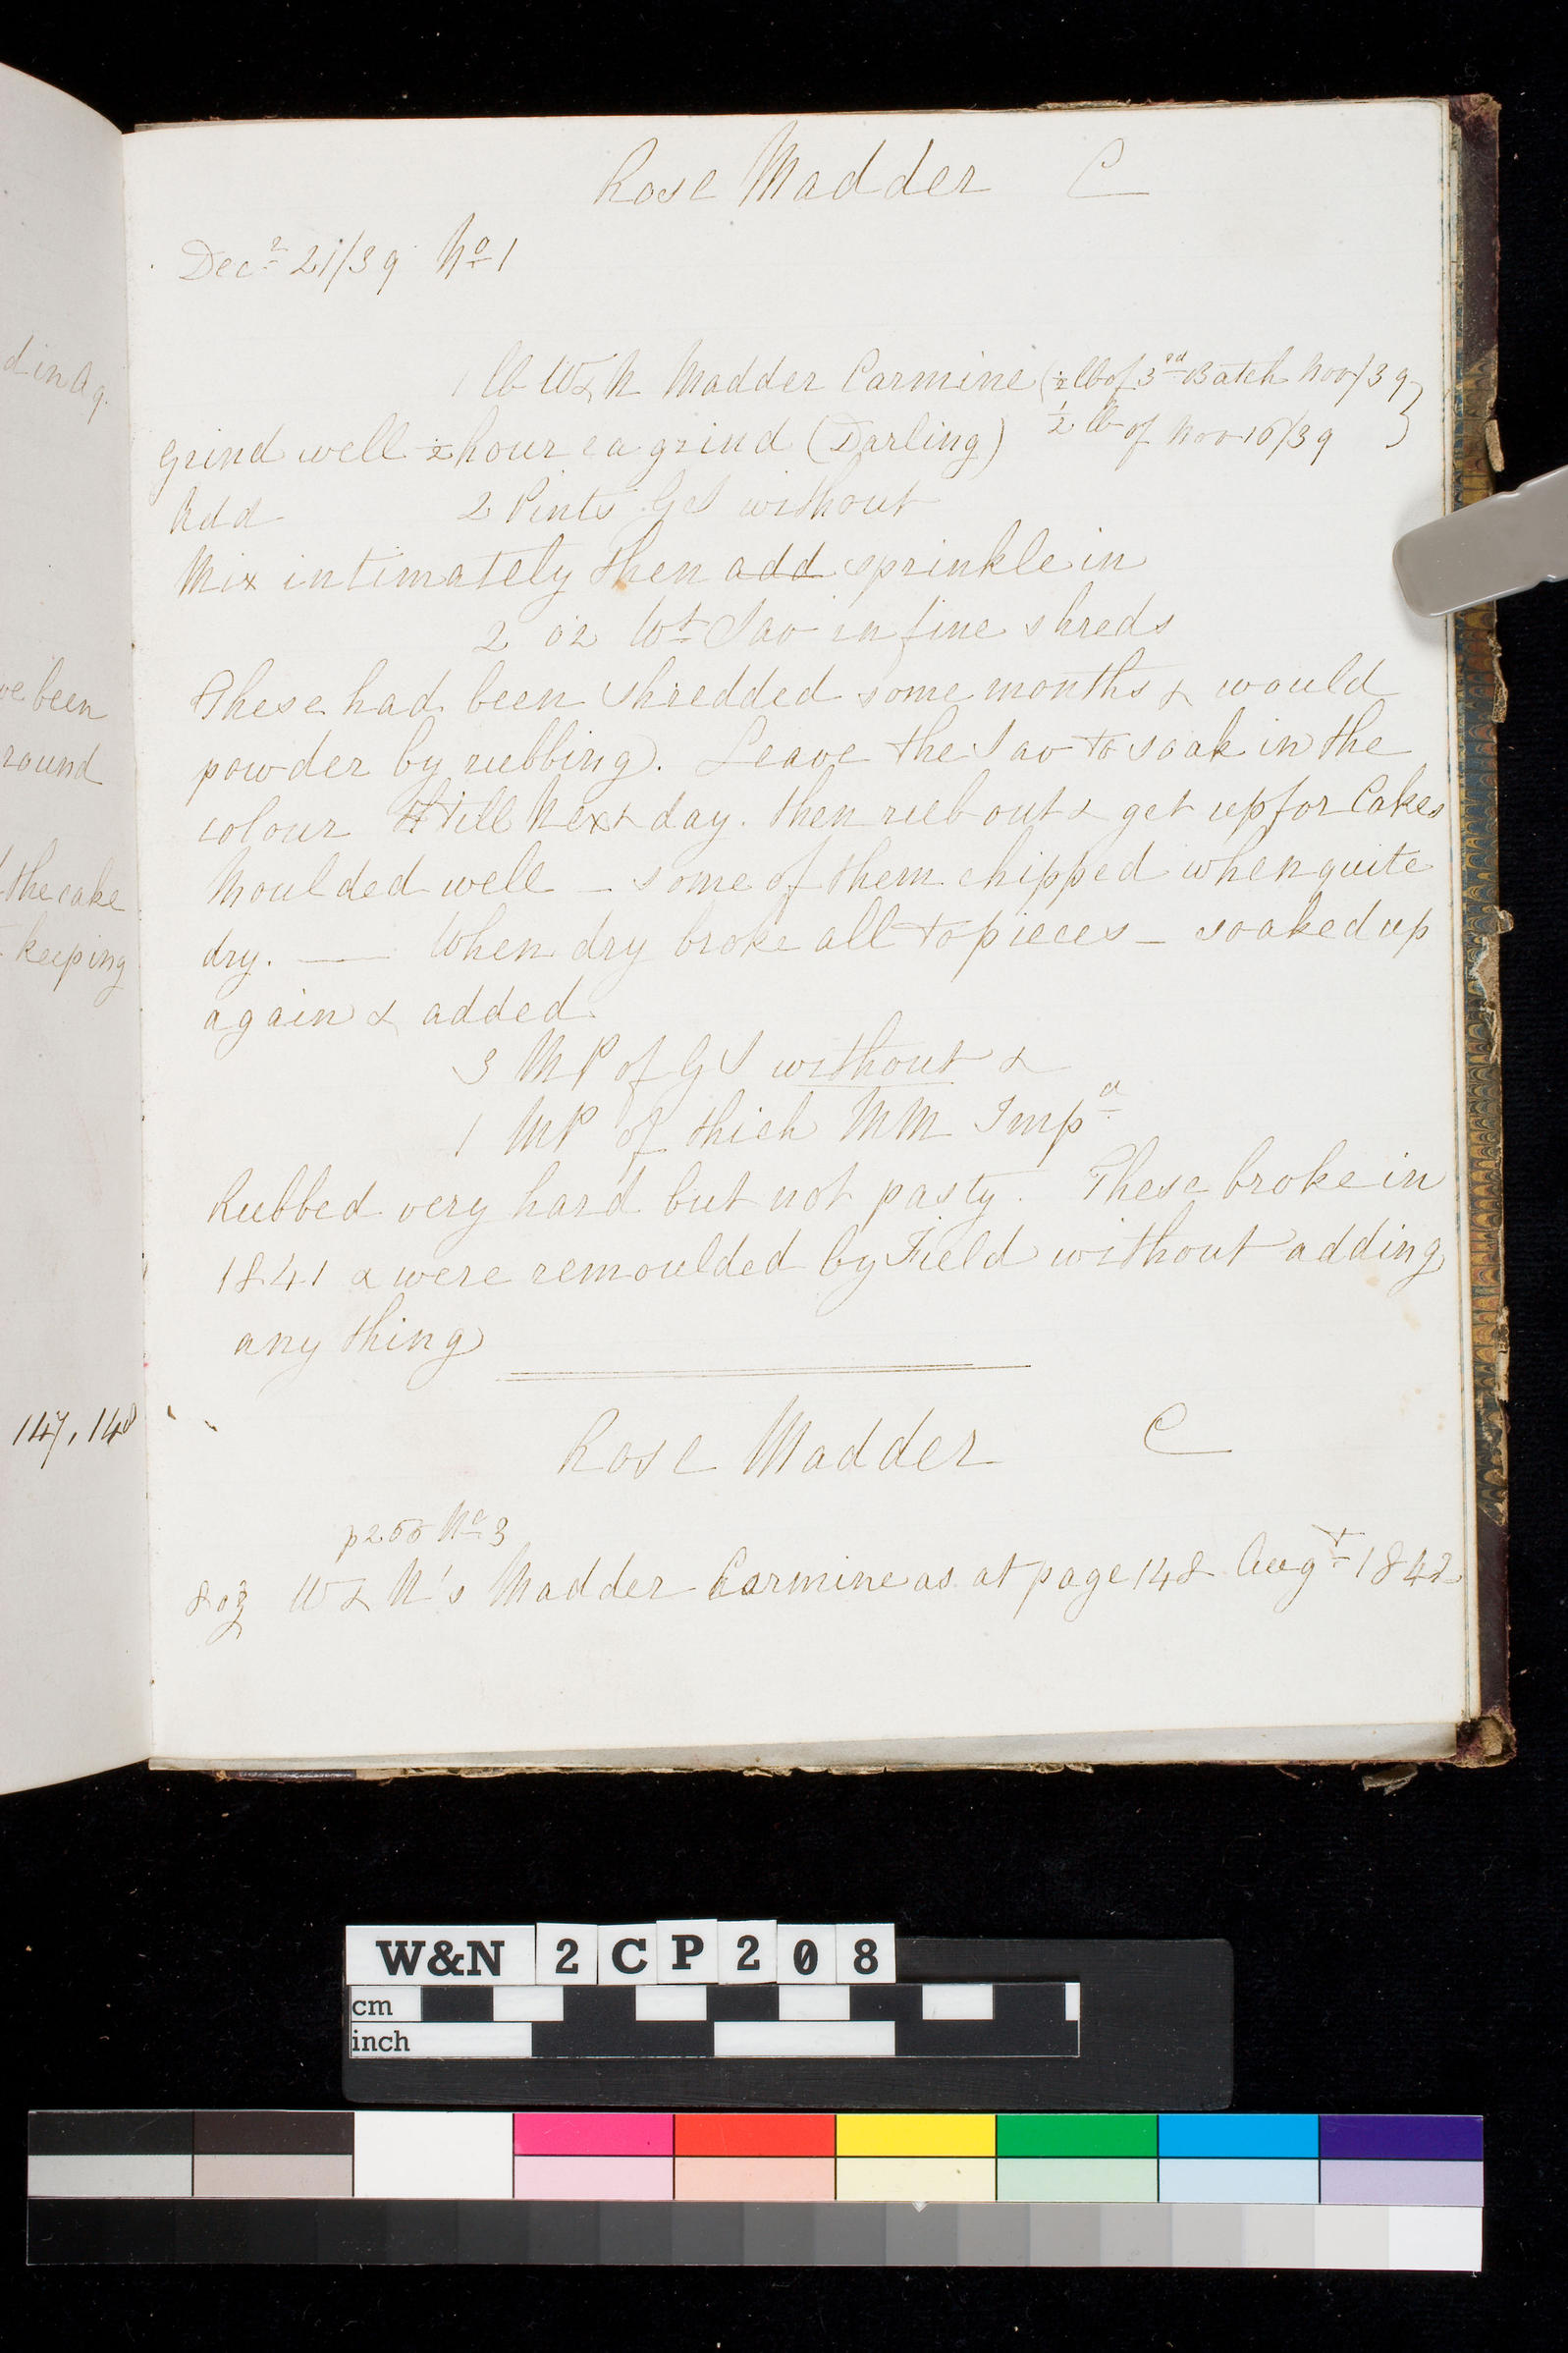 Rose Madder C
Decr 21/39 No 1
1 lb W & N Madder Carmine (½ lb of 3rd Batch Nov/39
½ lb of Nov 16/39 }
Grind well ½ hour ea grind (Darling)
Add 2 Pints GS without
Mix intimately then add sprinkle in
2 oz Wt Sav in fine shreds
These had been shredded some months & would
powder by rubbing. Leave the Sav to soak in the
colour till Next day. then rub out & get up for Cakes
Moulded well — some of them chipped when quite
dry. — When dry broke all to pieces — soaked up
again & added
3 MP of GS without &
1 MP of thick MM Impd
Rubbed very hard but not pasty. These broke in
1841 & were remoulded by Field without adding
any thing
Rose Madder C
p255 No 3
8 oz W & N's Madder Carmine as at page 148 Augt 1842
d in Ag.
ve been
round
the cake
keeping
147, 148
W&N 2CP208
cm
inch